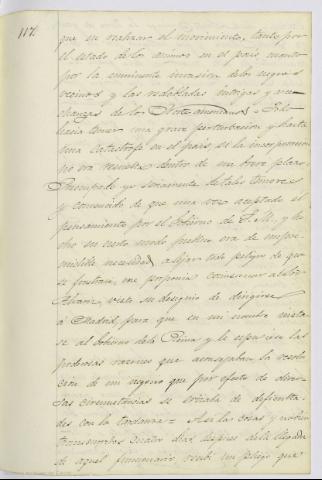 117.
que en realizar el movimiento, tanto por
el estado de los animos en el pais, cuanto
por la inminente invasion de los negros
vecinos y las redobladas intrigas y
de los Norte-americanos. Todo
hacia temer una grave perturbacion y hasta
una catastrofe en el pais si la incorporacion
no era resuelta dentro de un breve plazo.
Preocupado yo seriamente de tales temores
y convencido de que una vez aceptado el
pensamiento por el Gobierno de S. M. y he-
cho en cierto modo publico era de impres-
cindible necesidad alejar todo peligro de que
se frustrara, me proponia comisionar al
vista su designio de dirigirse
á Madrid, para que en mi nombre
se al Gobierno de la Reina y le espusiera las
poderosas razones que aconsejaban la resolu-
cion de un negocio que por efecto de diver-
sas circunstancias se erizaba de dificulta-
des con la tardanza = Asi las cosas y
transcurridos cuatro dias despues de la llegada
de aquel funcionario recibi un pliego que